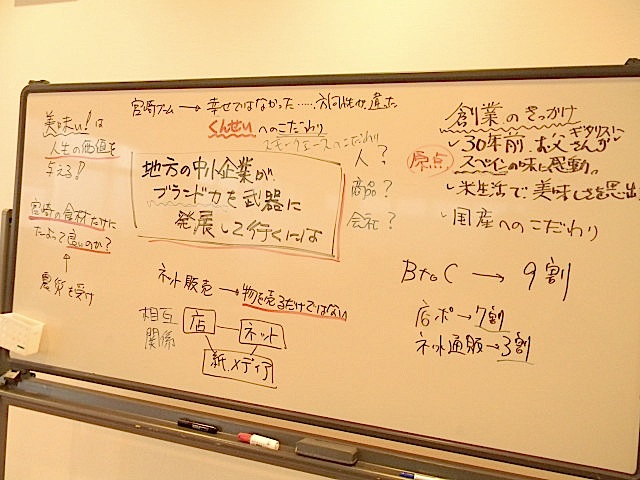 美味い!は
人生の価値を
与える!
宮崎の食材だけに
たよって良いのか?
↑
震災を受け
宮崎ブーム → 幸せではなかった……方向性が違った
くんせいへのこだわり
スモークチーズへのこだわり
地方の中小企業が
ブランド力を武器に
発展して行くには
人?
商品?
会社?
ネット販売 → 物を売るだけではない
相互
関係
店
ネット
紙メディア
創業のきっかけ
ギタリスト
✓30年前、お父さんが
原点
スペインの味に感動。
✓米生活で美味しさを思出
✓国産へのこだわり
BtoC → 9割
店ポ→7割
ネット通販→3割